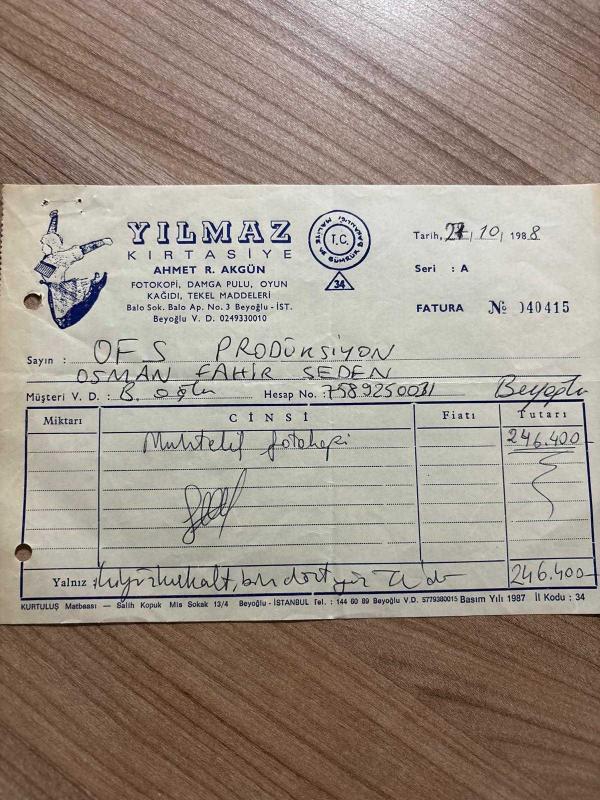 YILMAZ
KIRTASİYE
AHMET R. AKGÜN
FOTOKOPİ, DAMGA PULU, OYUN
KAĞIDI, TEKEL MADDELERİ
Balo Sok. Balo Ap. No. 3 Beyoğlu - İST.
Beyoğlu V. D. 0249330010
MALİYE VE GÜMRÜK BAKANLIĞI
T.C.
34
Tarih, 27/10/1988
Seri : A
FATURA № 040415
Sayın : OFS PRODÜKSİYON
OSMAN FAHİR SEDEN
Müşteri V. D. : B. oğlu Hesap No. : 7589250031 Beyoğlu
Miktarı CİNSİ Fiatı Tutarı
Muhtelif fotokopi 246.400-
Yalnız : ikiyüzkırkaltı bin dörtyüz TL'dır 246.400-
KURTULUŞ Matbaası — Salih Kopuk Mis Sokak 13/4 Beyoğlu - İSTANBUL Tel. : 144 60 89 Beyoğlu V.D. 5779380015 Basım Yılı 1987 İl Kodu : 34